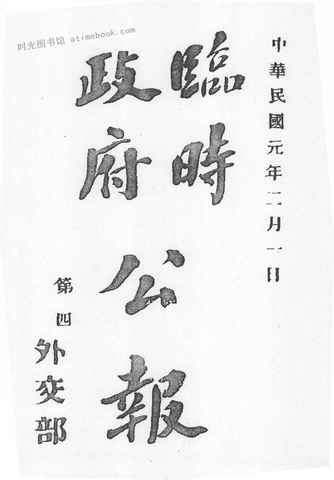 时光图书馆 atimebook.com
中華民國元年二月一日
臨時
政府
公報
第四
外交部